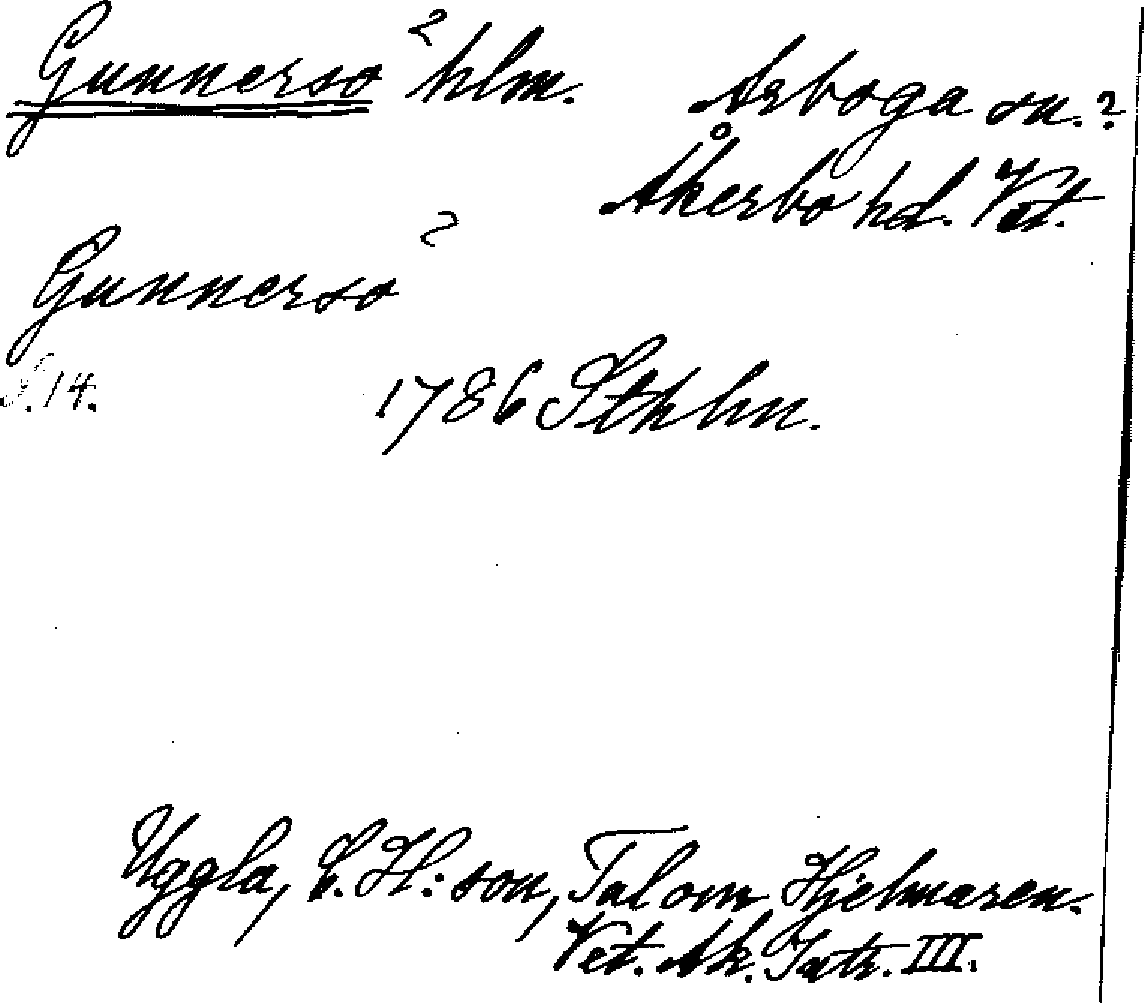 Gunnerso ? hlm. Arboga sn. ?
Åkerbo hd. Vst.
Gunnerso ?
S. 14. 1786 Sthlm.
Uggla, C. H:son, Tal om Hjelmaren.
Vet. Ak. Intr. III.